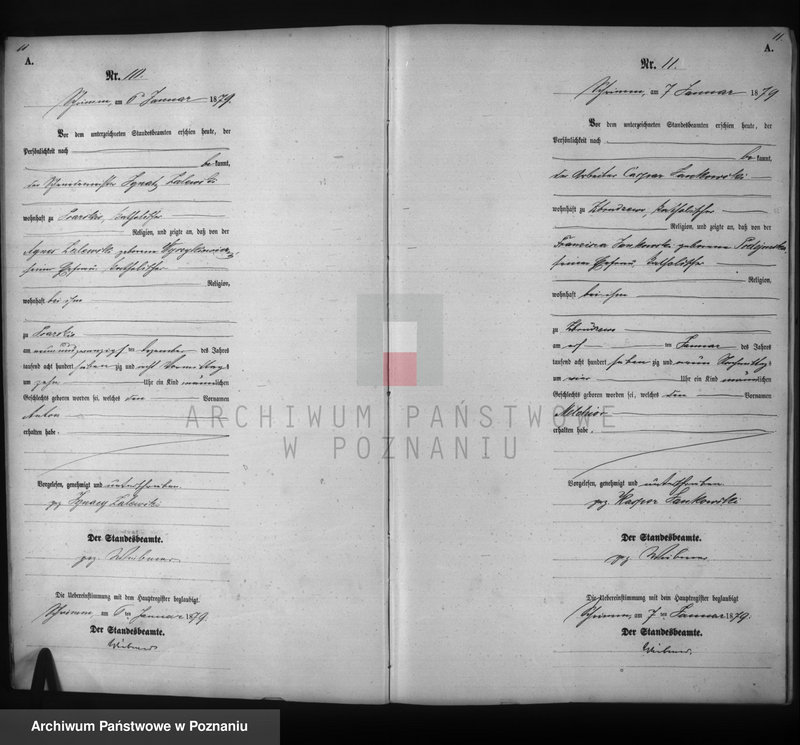 11.
A.
Nr. 10.
Schrimm, am 6 Januar 1879.
Vor dem unterzeichneten Standesbeamten erschien heute, der
Persönlichkeit nach
bekannt,
der Ignatz Zalewski
wohnhaft zu katholischer
Religion, und zeigte an, daß von der
Agnes Zalewski geborene
seiner Ehefrau, katholischer
Religion,
wohnhaft bei ihm
zu
am neun und zwanzigsten Dezember des Jahres
tausend acht hundert siebenzig und acht Vormittags
um zehn Uhr ein Kind männlichen
Geschlechts geboren worden sei, welches den Vornamen
Anton
erhalten habe.
Vorgelesen, genehmigt und unterschrieben
gez. Ignacy Zalewski
Der Standesbeamte.
gez.
Die Uebereinstimmung mit dem Hauptregister beglaubigt.
Schrimm, am 6ten Januar 1879.
Der Standesbeamte.
11.
A.
Nr. 11.
Schrimm, am 7 Januar 1879
Vor dem unterzeichneten Standesbeamten erschien heute, der
Persönlichkeit nach
bekannt,
der Arbeiter Caspar Jankowski
wohnhaft zu katholischer
Religion, und zeigte an, daß von der
Francisca Jankowska geborene
seiner Ehefrau, katholischer
Religion,
wohnhaft bei ihm
zu
am Januar des Jahres
tausend acht hundert siebenzig und neun Nachmittags
um vier Uhr ein Kind männlichen
Geschlechts geboren worden sei, welches den Vornamen
Melchior
erhalten habe.
Vorgelesen, genehmigt und unterschrieben
gez. Kasper Jankowski
Der Standesbeamte.
gez.
Die Uebereinstimmung mit dem Hauptregister beglaubigt
Schrimm, am 7ten Januar 1879.
Der Standesbeamte.
ARCHIWUM PAŃSTWOWE
W POZNANIU
Archiwum Państwowe w Poznaniu